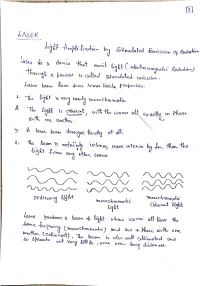 [5]
LASER
Light Amplification by Stimulated Emission of Radiation
Laser is a device that emit light (electromagnetic Radiation)
through a process is called stimulated emission.
Laser beam have some notable properties:
1. The light is very nearly monochromatic.
2. The light is coherent, with the waves all exactly in phase
with one another.
3. A laser beam diverges hardly at all.
4. The beam is extremely intense, more intense by far than the
light from any other source
ordinary light
monochromatic
light
monochromatic
coherent light
Laser produces a beam of light whose waves all have the
same frequency (monochromatic) and are in phase with one
another (coherent). The beam is also well collimated and
so spreads out very little, even over long distances.